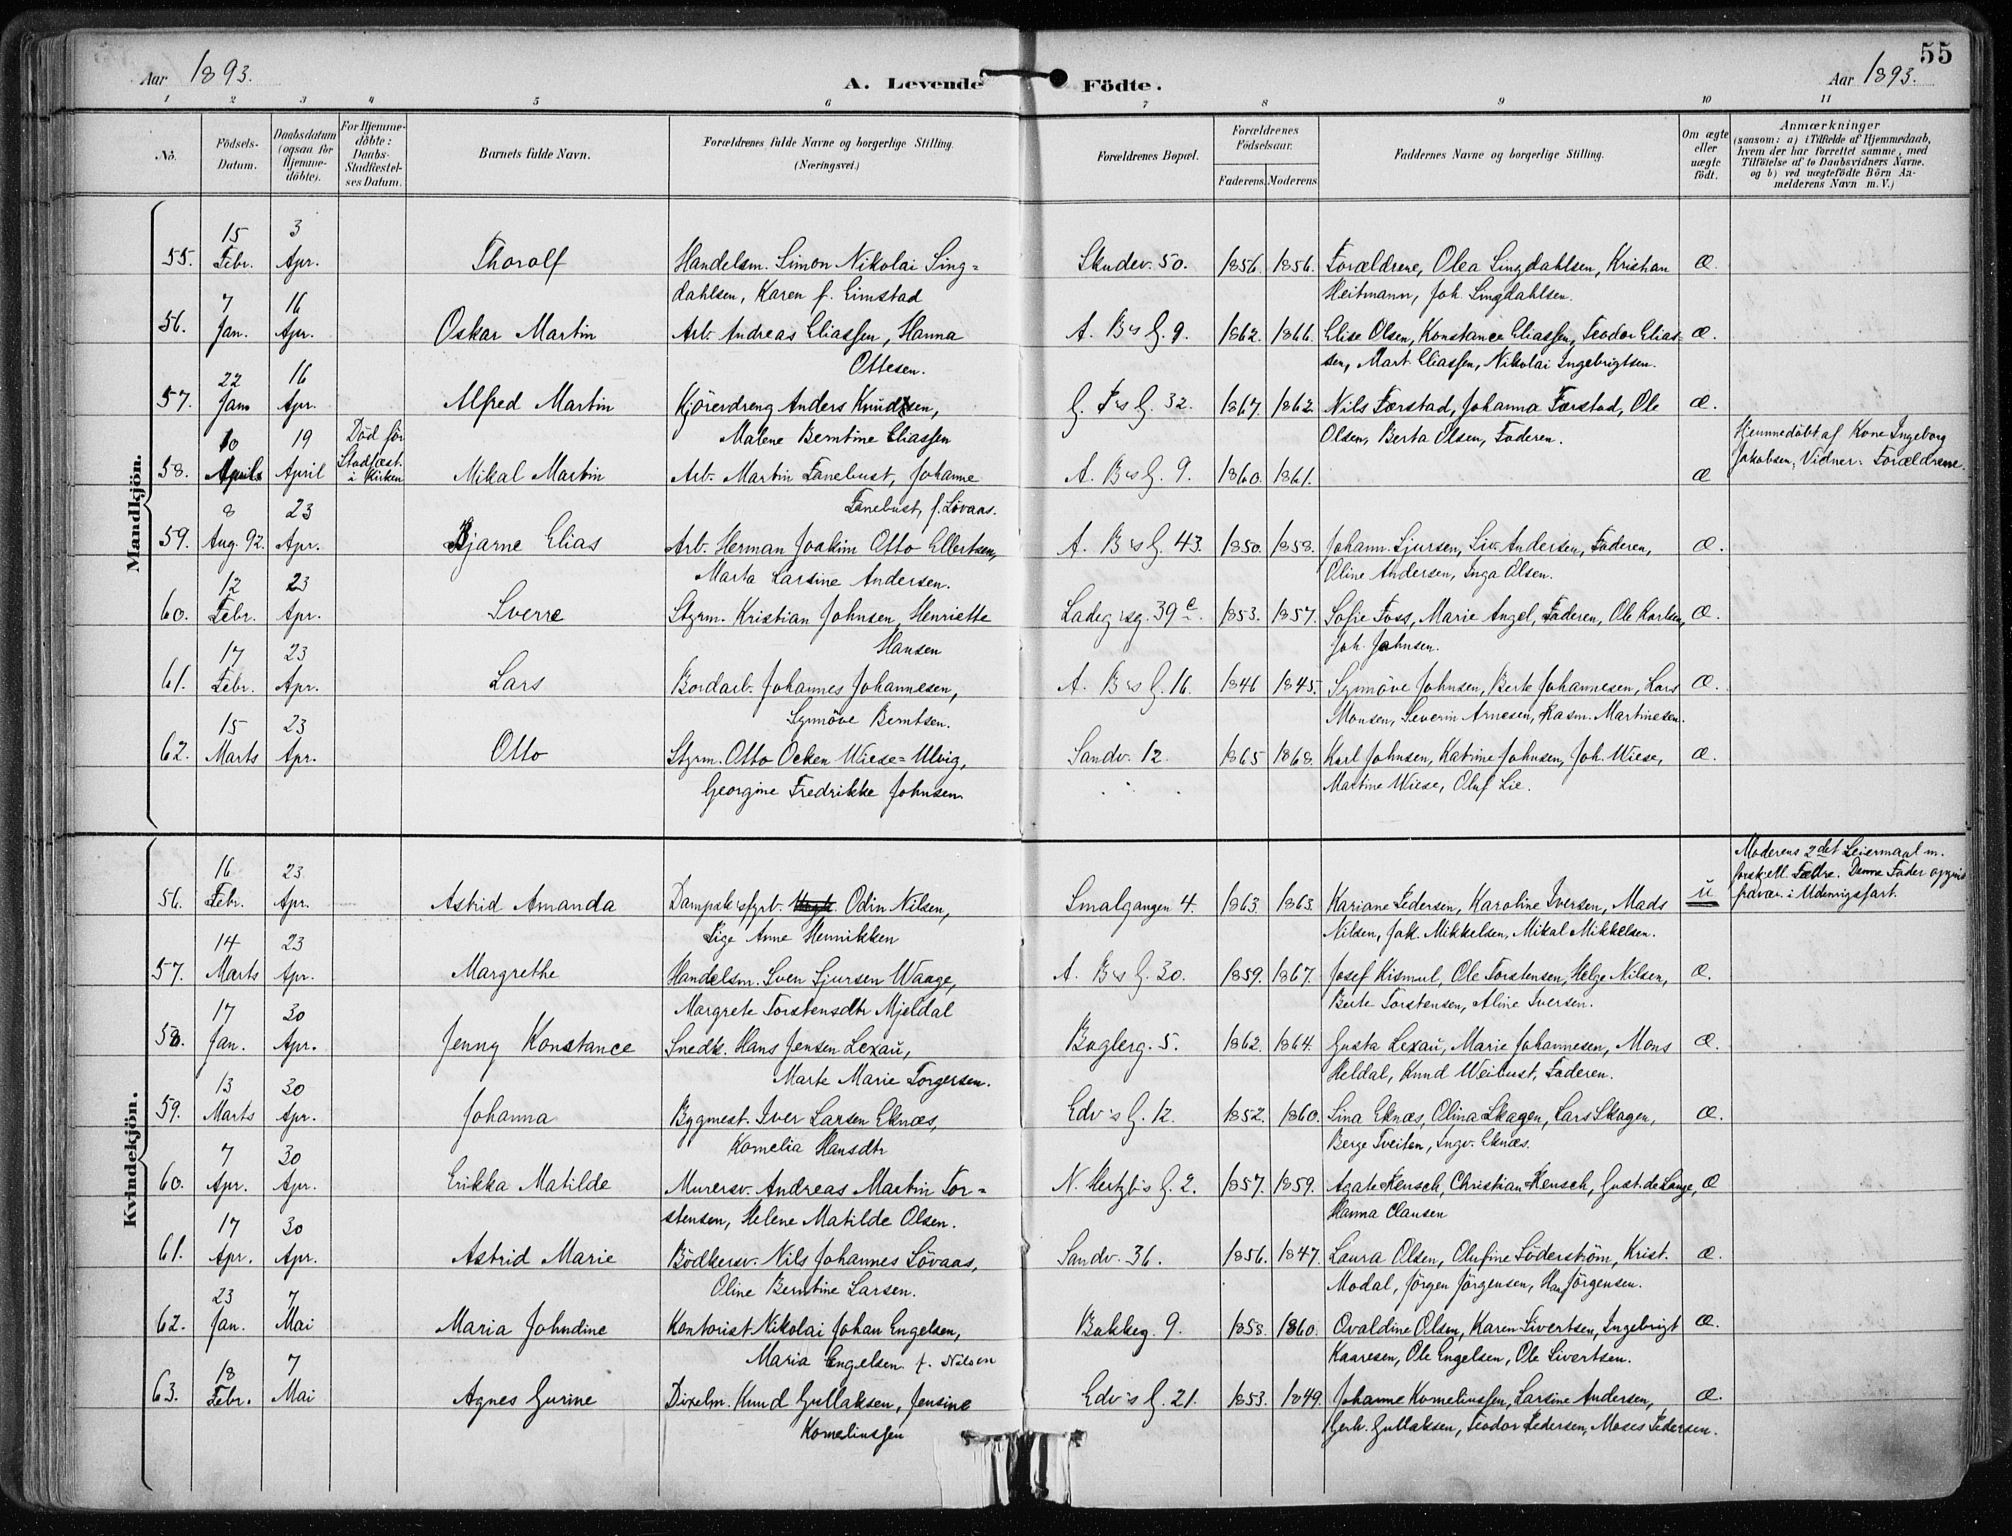 55
Aar 1893.
A. Levende Födte.
Aar 1893.
1 2 3 4 5 6 7 8 9 10 11
No.
Födsels-Datum.
Daabsdatum (ogsaa for Hjemme-döbte).
For Hjemme-döbte: Daabs-Stadfæstel-ses Datum.
Barnets fulde Navn.
Forældrenes fulde Navne og borgerlige Stilling. (Næringsvei.)
Forældrenes Bopæl.
Forældrenes Födselsaar.
Faderens. Moderens.
Faddernes Navne og borgerlige Stilling.
Om ægte eller uægte födt.
Anmærkninger
(saasom: a) i Tilfælde af Hjemmedaab,
hvem der har forrettet samme, med
Tilföielse af to Daabsvidners Navne.
og b) ved uægtefödte Börn An-
melderens Navn m. V.)
Mandkjön.
55. 15 Febr. 3 Apr. Thorolf Handelsm. Simon Nikolai Sing= Skudev. 50. 1856. 1856. Forældrene, Olea Singdahlsen, Kristian Æ.
dahlsen, Karen f. Eimstad Heitmann, Joh. Singdahlsen.
56. 7 Jan. 16 Apr. Oskar Martin Arb. Andreas Eliassen, Hanna A. B's G. 9. 1862. 1866. Elise Olsen, Konstance Eliassen, Teodor Elias= Æ.
Ottesen. sen, Mart. Eliassen, Nikolai Ingebrigtsen.
57. 22 Jan 16 Apr. Alfred Martin Kjörerdreng Anders Knudsen, G. F's G. 32. 1867. 1862. Nils Færstad, Johanna Færstad, Ole Æ.
Malene Berntine Eliassen Olsen, Berta Olsen, Faderen.
58. 10 April 19 April Död för Stadfæst. i Kirken Mikal Martin Arb. Martin Fanebust, Johanne A. B's G. 9. 1860. 1861. Æ Hjemmedöbt af Kone Ingeborg
Fanebust, f. Lövaas. Jakobsen, Vidner: Forældrene.
59. 8 Aug. 92. 23 Apr. Bjarne Elias Arb. Herman Joakim Otto Ellertsen, A. B's G. 43. 1850. 1858. Johann. Sjursen, Siv. Andersen, Faderen, Æ.
Marta Larsine Andersen. Oline Andersen, Inga Olsen.
60. 12 Febr. 23 Apr. Sverre Styrm. Kristian Johnsen, Henriette Ladeg'sg. 39 e. 1853. 1857. Sofie Foss, Marie Angel, Faderen, Ole Karlsen, Æ.
Hansen Joh. Johnsen.
61. 17 Febr. 23 Apr. Lars Bordarb. Johannes Johannesen, A. B's G. 16. 1846 1845. Synnöve Johnsen, Berte Johannesen, Lars Æ.
Synnöve Berntsen. Monsen, Severin Arnesen, Rasm. Martinesen.
62. 15 Marts 23 Apr. Otto Styrm. Otto Ocken Wiese=Ulvig, Sandv. 12. 1865 1868. Karl Johnsen, Katrine Johnsen, Joh. Wiese, Æ.
Georgine Fredrikke Johnsen. Martine Wiese, Oluf Lie.
Kvindekjön.
56. 16 Febr. 23 Apr. Astrid Amanda Dampsk'sfyrb. Odin Nilsen, Smalgangen 4. 1863. 1863. Kariane Pedersen, Karoline Iversen, Mads u Moderens 2det Leiermaal m.
Pige Anne Henrikken Nilsen, Jak. Mikkelsen, Mikal Mikkelsen. forskjell. Fædre. Denne Fader
fravær. i Udenrigsfart.
57. 14 Marts 23 Apr. Margrethe Handelsm. Sven Sjursen Waage, A. B's G. 30. 1859. 1867. Josef Kismul, Ole Torstensen, Helge Nilsen, Æ.
Margrete Torstensdtr Mjeldal Berte Torstensen, Aline Iversen.
58. 17 Jan. 30 Apr. Jenny Konstance Snedk. Hans Jensen Lexau, Baglerg. 5. 1862. 1864. Gusta Lexau, Marie Johannesen, Mons Æ.
Marte Marie Torgersen. Heldal, Knud Weibust, Faderen.
59. 13 Marts 30 Apr. Johanna Bygmest. Iver Larsen Eknæs, Edv's G. 12. 1852. 1860. Sina Eknæs, Olina Skagen, Lars Skagen, Æ.
Kornelia Hansdtr Berge Tveiten, Ingv. Eknæs.
60. 7 Apr. 30 Apr. Erikka Matilde Murersv. Andreas Martin Tor= N. Hertzb's G. 2. 1857. 1859. Agate Hensch, Christian Hensch, Gust. de Lange, Æ
stensen, Helene Matilde Olsen. Hanna Clausen
61. 17 Apr. 30 Apr. Astrid Marie Bödkersv. Nils Johannes Lövaas, Sandv. 36. 1856. 1847. Laura Olsen, Olufine Söderström, Krist. Æ.
Oline Berntine Larsen. Modal, Jörgen Jörgensen, Jörgensen.
62. 23 Jan. 7 Mai Maria Johndine Kontorist Nikolai Johan Engelsen, Bakkeg. 9. 1858. 1860. Ovaldine Olsen, Karen Sivertsen, Ingebrigt Æ.
Maria Engelsen f. Nilsen Kaaresen, Ole Engelsen, Ole Sivertsen.
63. 18 Febr. 7 Mai Agnes Gurine Dixelm. Knud Gullaksen, Jensine Edv's G. 21. 1853. 1849. Johanne Korneliussen, Larsine Andersen, Æ.
Korneliussen Gerh. Gullaksen, Teodor Pedersen, Moses Pedersen.